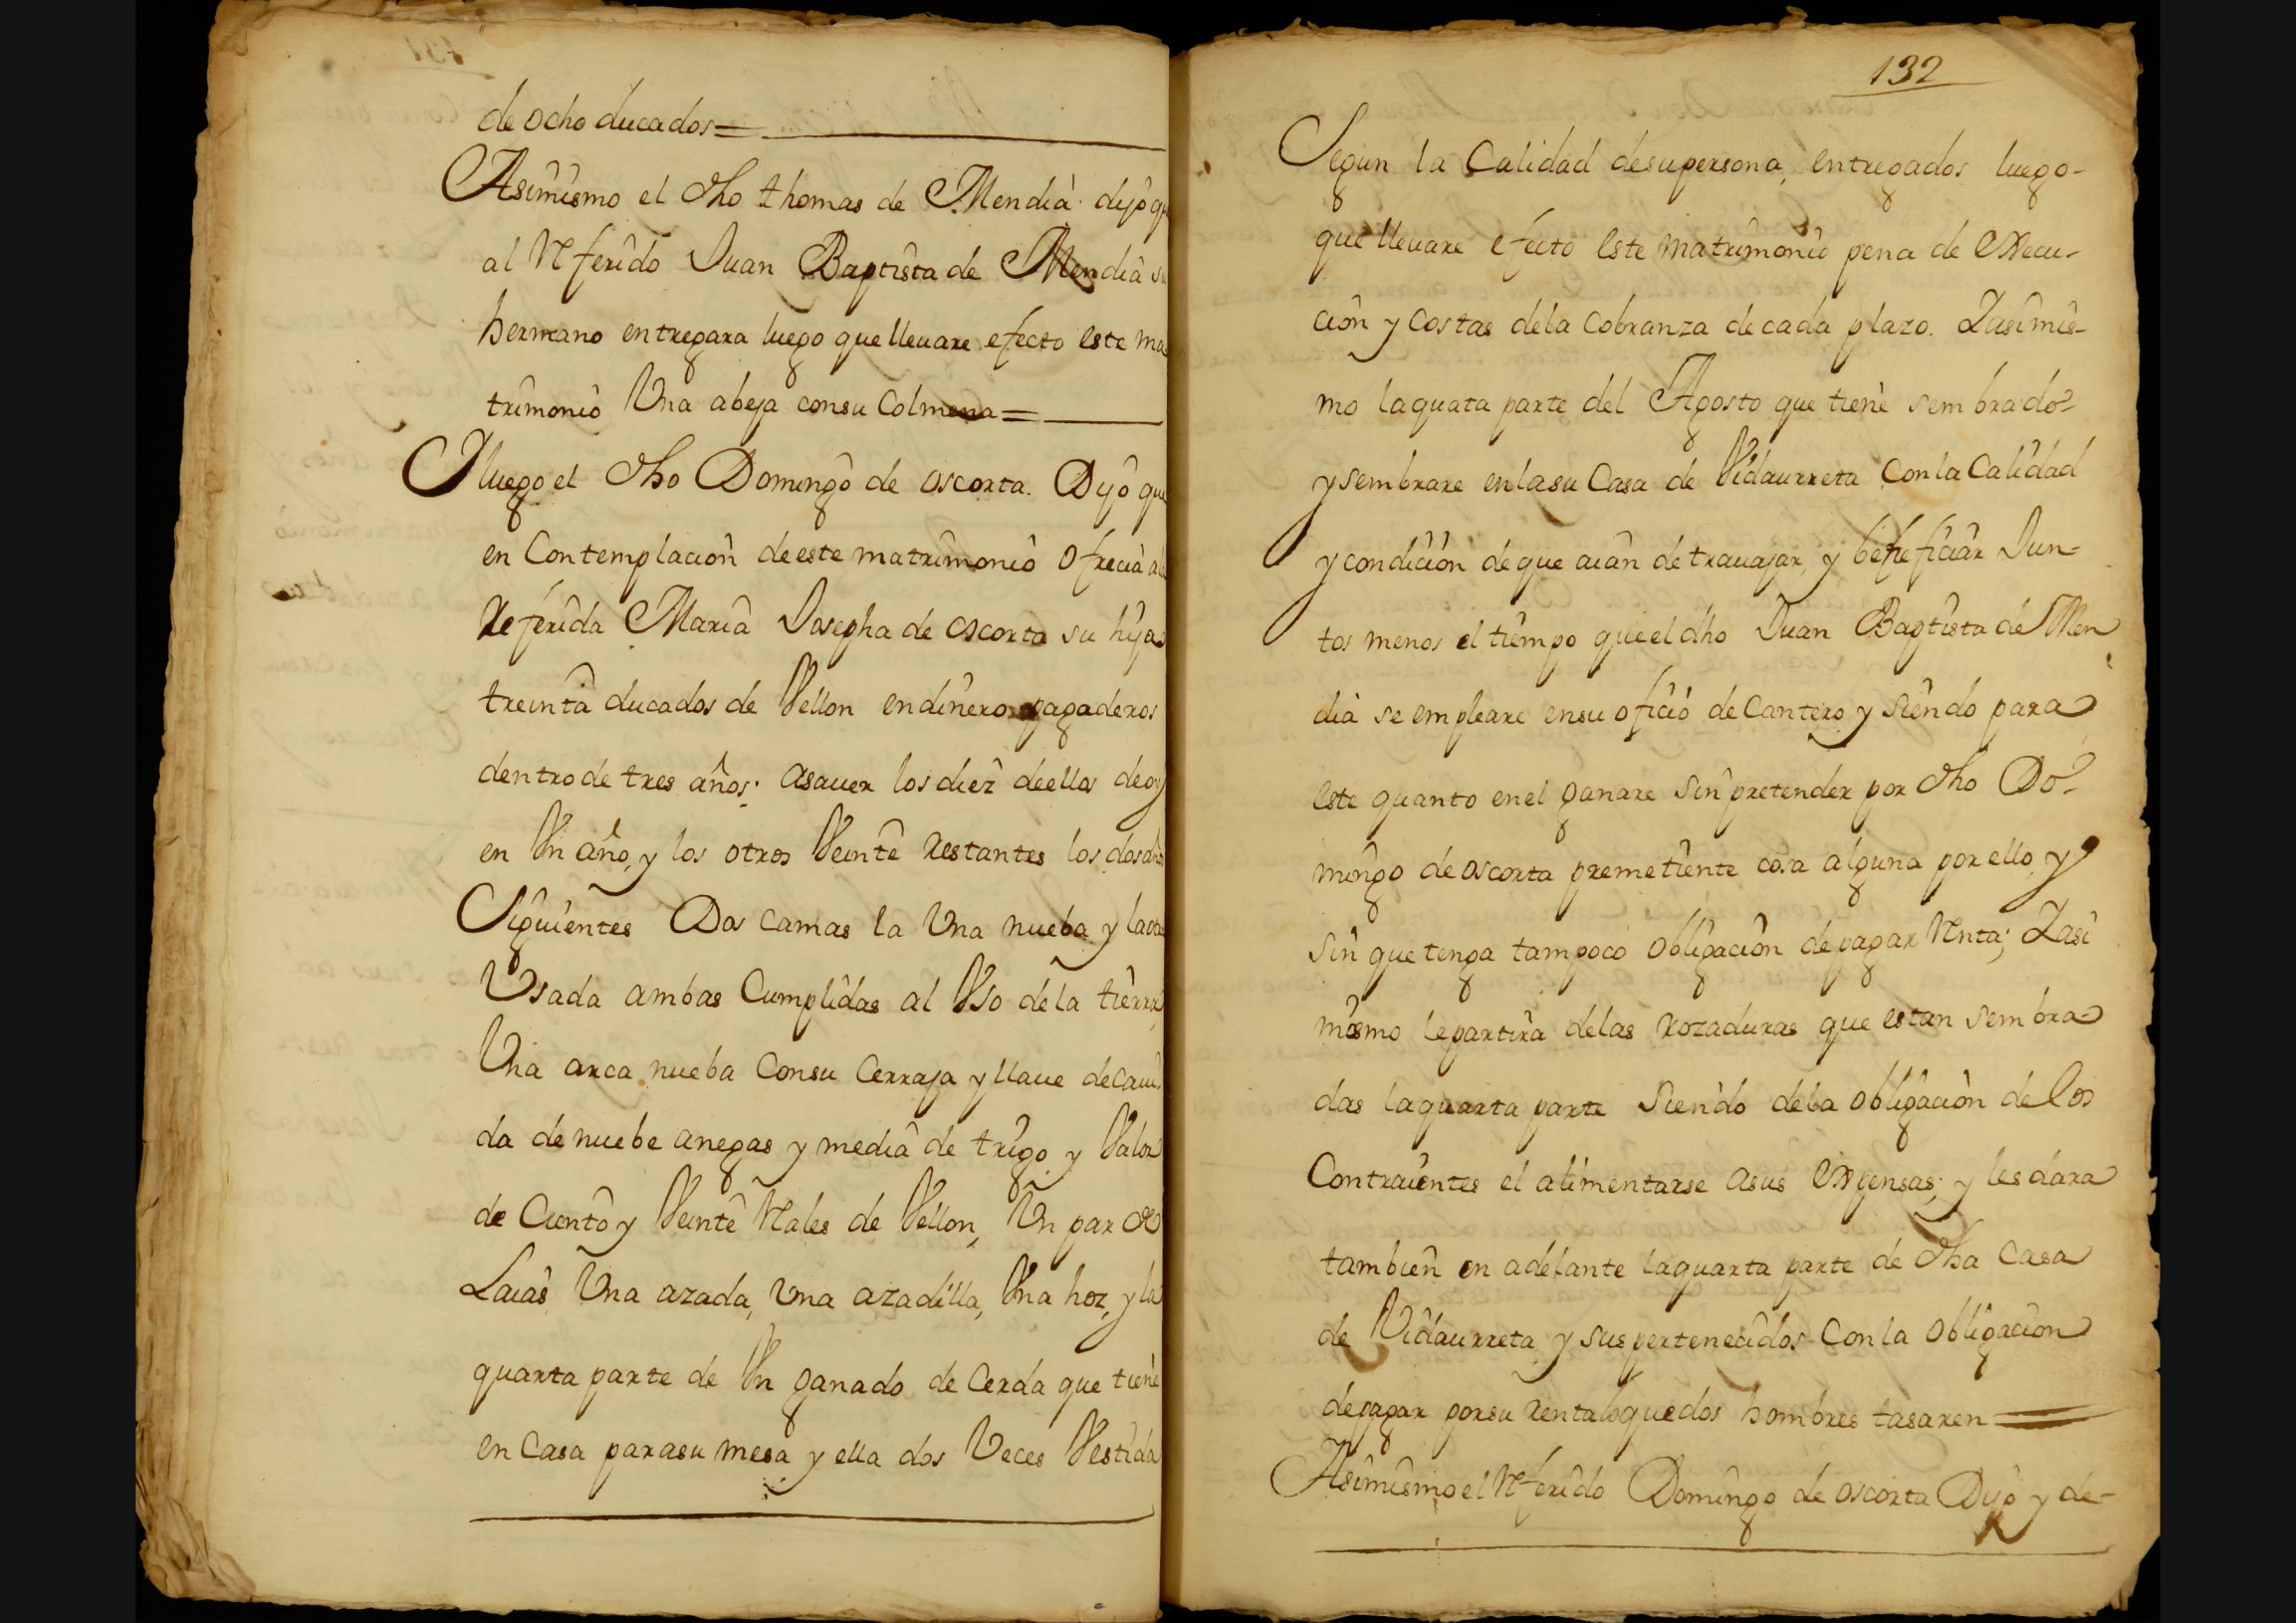 de ocho ducados=
Asimismo el dho thomas de Mendia dijo qe
al Referido Juan Baptista de Mendia su
hermano entregara luego que lleuare efecto este ma
trimonio Vna abeja consu Colmena=
I luego el dho Domingo de oscorta. Dijo que
en Contemplacion de este matrimonio ofrecia ala
Referida Maria Josepha de oscorta su hija
treinta ducados de Vellon endinero pagaderos
dentro de tres años; asauer los diez deellos de oy
en Vn año, y los otros Veinte Restantes los dos años
Siguientes Dos camas la Vna nueba y laotra
Vsada ambas Cumplidas al Vso dela tierra,
Vna arca nueba Consu Cerraja y llaue decaui-
da de nuebe anegas y media de trigo y Valor
de Ciento y Veinte Reales de Vellon, Vn par de
Laias Vna azada, Vna azadilla, Vna hoz, y la
quarta parte de Vn ganado de Cerda que tiene
en Casa parasu mesa y ella dos Veces Vestida
132
Segun la Calidad desupersona, entregados luego-
que lleuare efecto este matrimonio pena de execu-
cion y Costas dela Cobranza de cada plazo. Iasimis-
mo laquata parte del Agosto que tiene sembrado
y sembrare enlasu Casa de Vidaurreta Conla Calidad
y condicion de que aian de trauajar, y beneficiar Jun-
tos menos el tiempo que el dho Juan Baptista de Men
dia se empleare ensu oficio de Cantero y siendo para
este quanto enel ganare sin pretender por dho Do-
mingo de oscorta premetiente cosa alguna por ello, y
sin que tenga tampoco obligacion depagar Renta; Iasi
mismo lepartira delas Rozaduras que estan sembra
das laquarta parte siendo dela obligacion de los
Contraientes el alimentarse asus expensas; y les dara
tambien en adelante laquarta parte de dha Casa
de Vidaurreta y suspertenecidos Conla obligacion
depagar porsu Renta loquedos hombres tasaren=
Asimismo el Referido Domingo de oscorta Dijo y de-